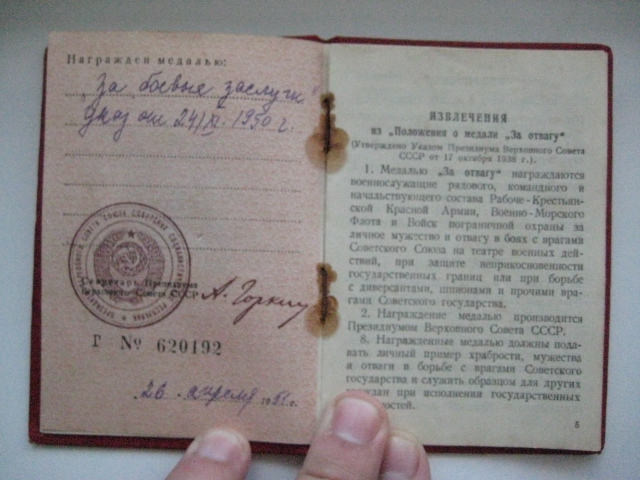 Награжден медалью:
За боевые заслуги"
Указ от 24/XI-1950 г.
Секретарь Президиума
Верховного Совета СССР
А. Горкин
Г № 620192
26 апреля 1951 г.
ИЗВЛЕЧЕНИЯ
из „Положения о медали „За отвагу“
(Утверждено Указом Президиума Верховного Совета
СССР от 17 октября 1938 г.).
1. Медалью „За отвагу“ награждаются
военнослужащие рядового, командного и
начальствующего состава Рабоче-Крестьян-
ской Красной Армии, Военно-Морского
Флота и Войск пограничной охраны за
личное мужество и отвагу в боях с врагами
Советского Союза на театре военных дей-
ствий, при защите неприкосновенности
государственных границ или при борьбе
с диверсантами, шпионами и прочими вра-
гами Советского государства.
2. Награждение медалью производится
Президиумом Верховного Совета СССР.
8. Награжденные медалью должны пода-
вать личный пример храбрости, мужества
и отваги в борьбе с врагами Советского
государства и служить образцом для других
граждан при исполнении государственных
5